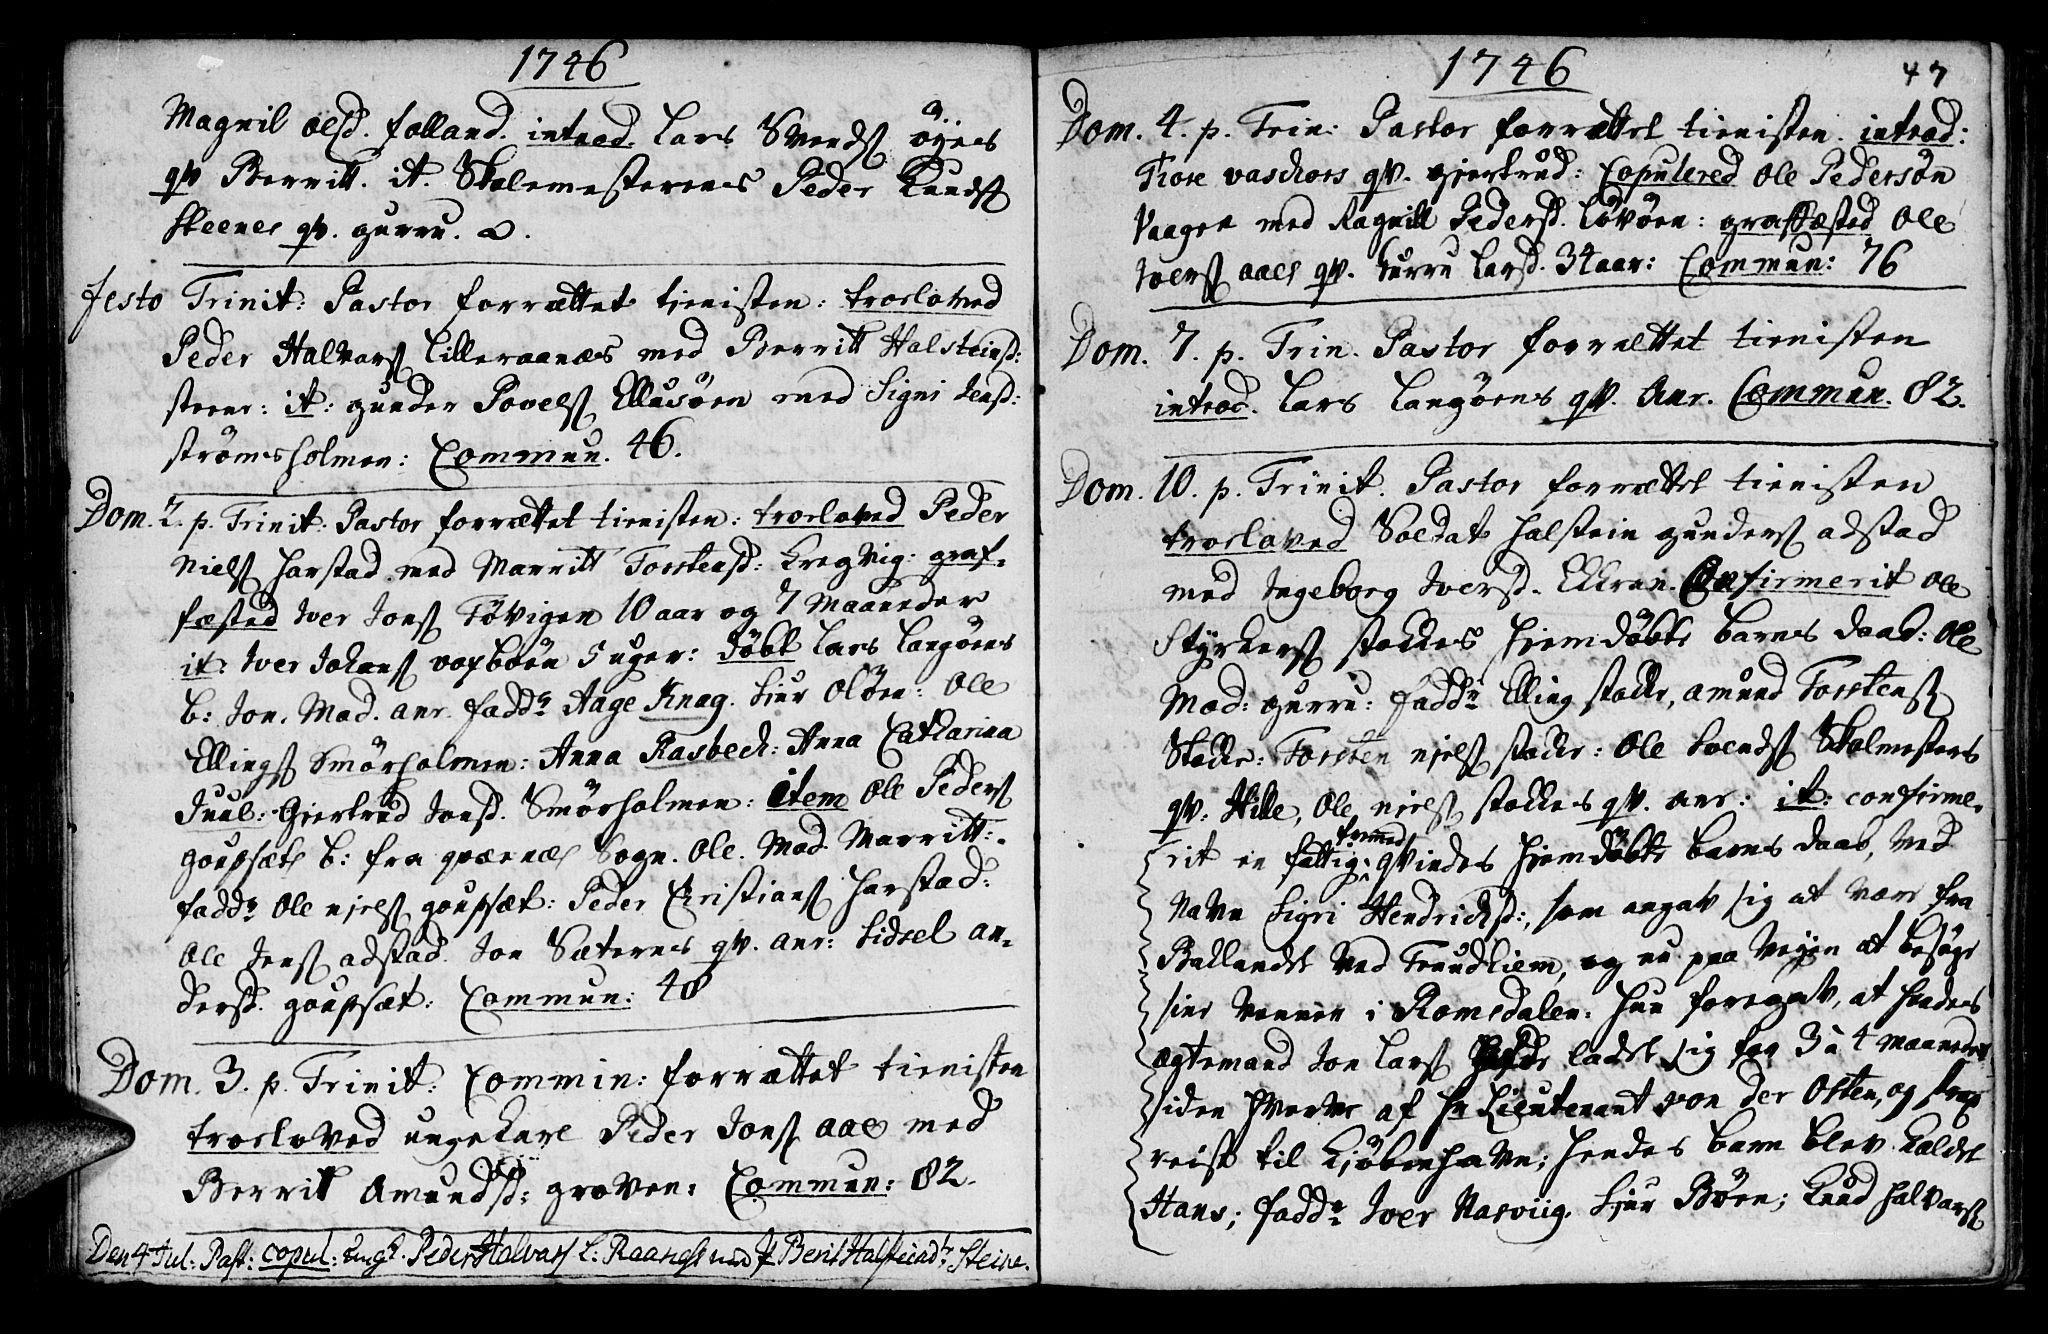 1746
Magnil olsd. folland. introd. Lars Svends øyes
qv Berritt. it. Skolemesterens Peder Knuds
skeenes qv. gurru. 2.
festo Trinit: Pastor forrættet tienisten: troeloved
Peder Halvars Lilleraanæs med Berritt Halsteinsd:
steene: it: gunder Povels Ellusøen med Signi Jensd:
strømsholmen: Commun. 46.
Dom. 2. p. Trinit: Pastor forrættet tienisten: troeloved Peder
Niels harstad med Marritt Torstensd: Kregvig: graf-
fæsted Iver Jons Tøvigen 10 aar og 7 Maaneder
it: Iver Johans vogbøen 5 uger: døbt Lars Langøens
b: Jon. Mod. anr. fadd: Aage Knag. Siur Oløen: Ole
Ellings Smørholmen: Anna Rasbech: Anna Catharina
Juul: Giertrud Jonsd. Smørholmen: item Ole Peders
goupsæt b: fra qværnæs Sogn. Ole. Mod. Marritt:
fadd: Ole niels goupsæt: Peder Christians harstad:
Ole Jens adstad. Jon Sæternes qv. anr: Sidsel an-
dersd. goupsæt: Commun: 48
Dom. 3. p. Trinit: Commin: forrættet tienisten
troeloved ungekarl Peder Jons aae med
Berrit Amundsd: groven: Commun: 82.
Den 4 Jul: Past: copul: ungk. Peder Halvars L: Raanes med P Berit Halsteinsd: Steine.
1746 47
Dom. 4. p. Trin: Pastor forrættet tienisten. introd:
Tore vaschors qv. giertrud: Copulered Ole Pedersøn
Vaagen med Ragnill Pedersd. Løvøen: graffæsted Ole
Ivers aaes qv. Gurru Larsd. 34 aar: Commun: 76
Dom. 7. p. Trin. Pastor forrættet tienisten
introd. Lars Langøens qv. Anr. Commun. 82.
Dom. 10. p. Trinit. Pastor forrættet tienisten
troeloved Soldat halstein gunders adstad
med Ingeborg Iversd. Eckren. Confirmerit Ole
Styrkers stockes hiemdøbte barns daab: Ole
Mod: gurru: fadd: Elling stocke, amund Torstens
Stocke: Torsten niels stocke: Ole Svends Skolmesters
qv: Hille, Ole niels stockes qv. anr: it: confirme-
rit en fattig fremmed qvindes hiemdøbte barns daab, ved
Navn Sigri Hendrichsd:, som angav sig at være fra
Ballandet ved Trundhiem, og nu paa Veyen at besøge
sine Venner i Romsdalen: hun foregav, at hendes
ægtemand Jon Lars hafde ladet sig for 3 à 4 maaneder
siden hverve af Hr Lieutenant von der Osten, og strax
reist til Kiøbenhavn; hendes barn blev kaldet
Hans; fadd: Iver Nasviig. Siur Bøen; Knud halvars